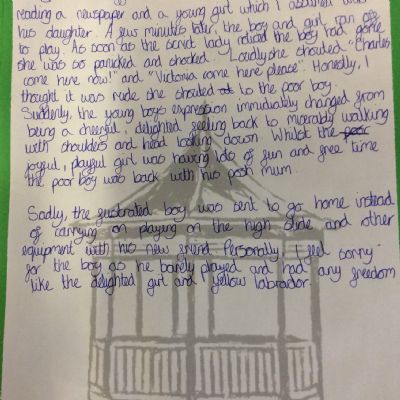 reading a newspaper and a young girl which I assumed was
his daughter. A few minutes later, the boy and girl ran off
to play. As soon as the strict lady noticed the boy had gone
she was so panicked and shocked. Loudly she shouted "Charles
come here now!" and "Victoria come here please". Honestly, I
thought it was rude she shouted at to the poor boy.
Suddenly, the young boys expression immidiatly changed from
being a cheerful, delighted feeling back to miserably walking
with shoulders and head looking down. Whilst the poor
joyful, playful girl was having lots of fun and free time
the poor boy was back with his posh mum.
Sadly, the frustrated boy was sent to go home instead
of carrying on playing on the high slide and other
equipment with his new friend. Personally, I feel sorry
for the boy as he barely played and had any freedom
like the delighted girl and yellow labrador.